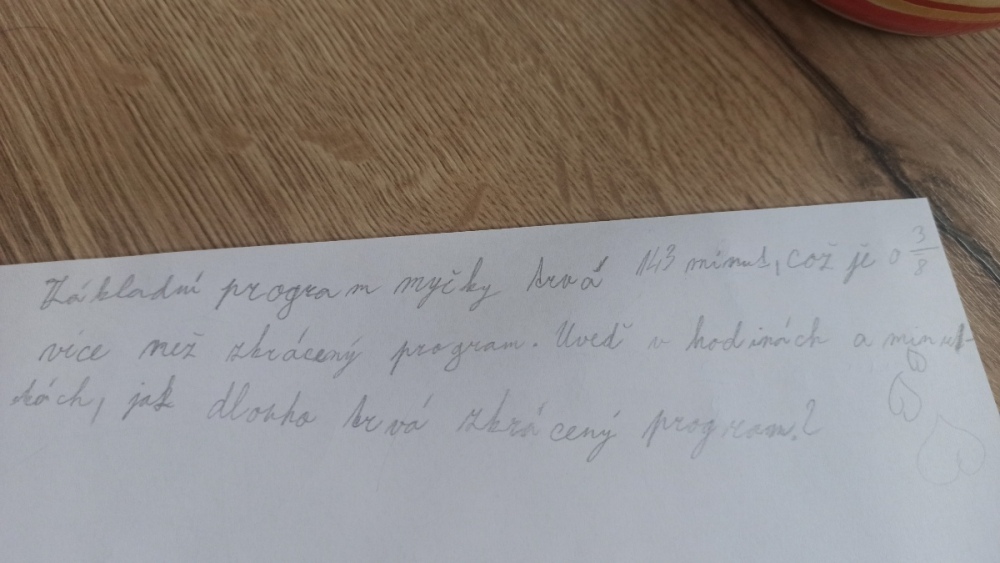 Základní program myčky trvá 143 minut, což je o 3/8
více než zkrácený program. Uveď v hodinách a minut-
kách, jak dlouho trvá zkrácený program?